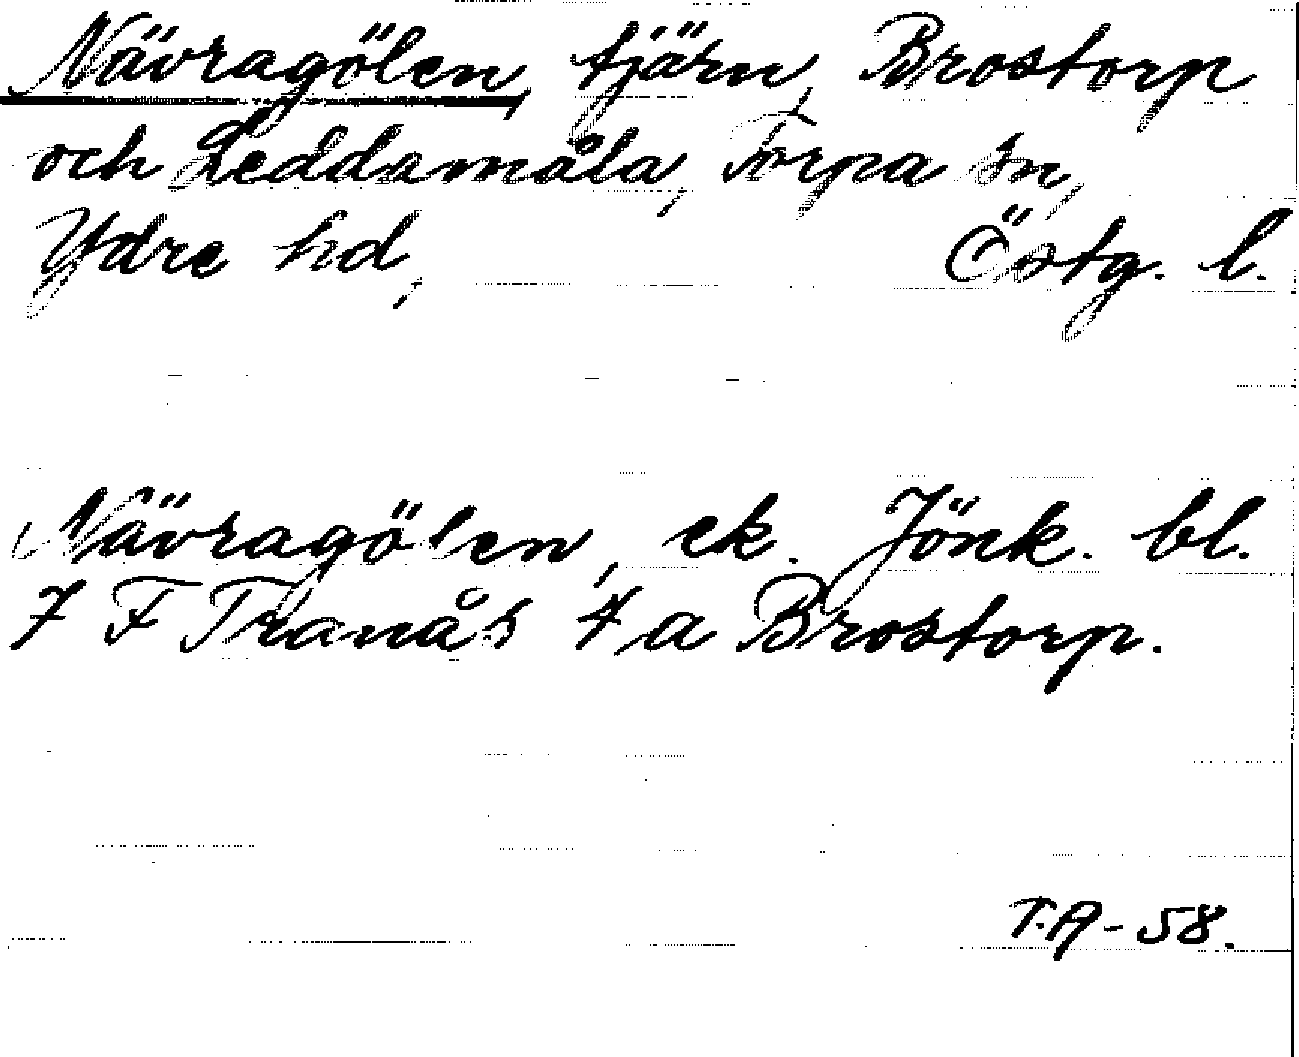 Nävragölen, tjärn, Brostorp
och Leddamåla, Torpa sn,
Ydre hd, Östg. l.
Nävragölen, ek. Jönk. bl.
7 F Tranås 7 a Brostorp.
T.A-58.